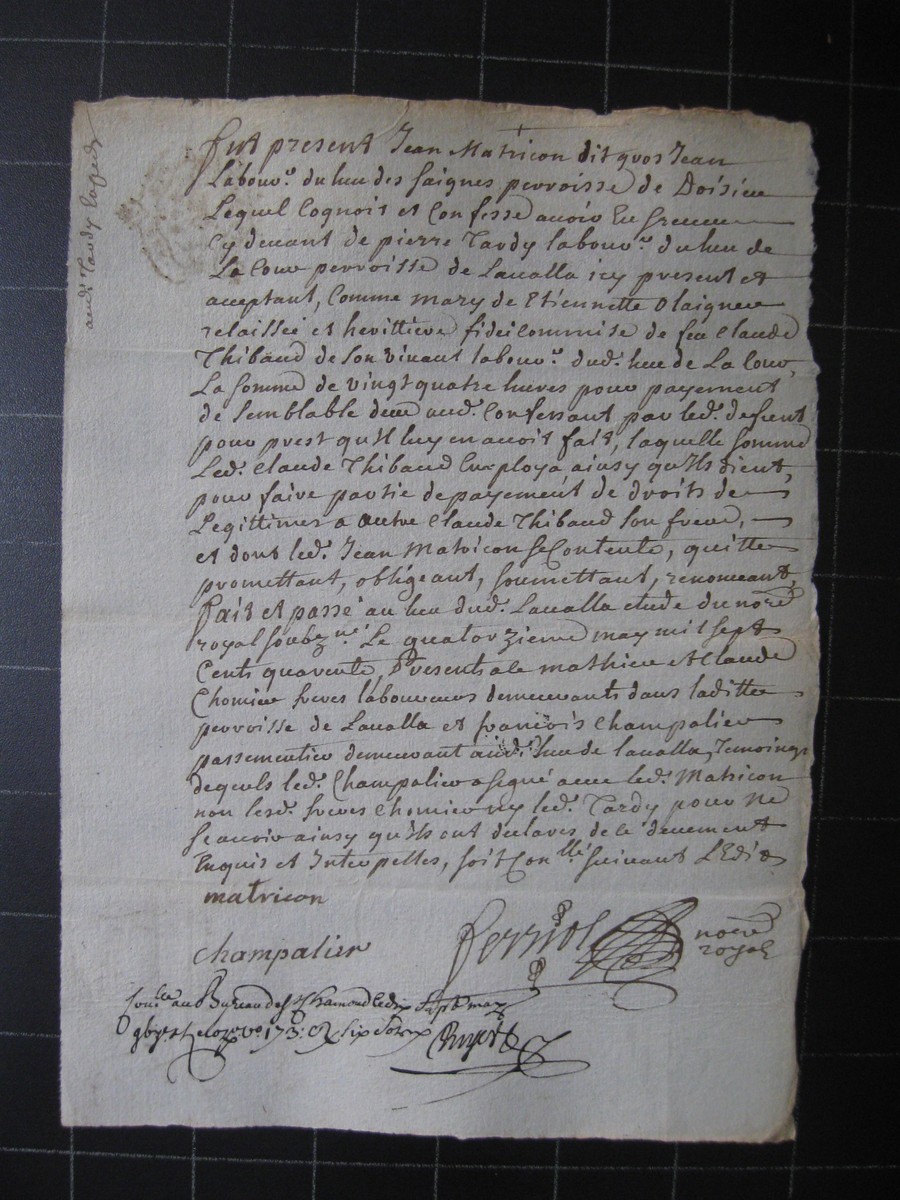 Fut present Jean Matricon dit gros Jean
Labour.r du lieu des saignes perroisse de Doisieu
Lequel Cognoit et Confesse avoir Eu
Cy devant de pierre Tardy labour.r du lieu de
La Cour perroisse de Lavalla icy present et
acceptant, Comme mary de Etiennette Olaignier
relaissée et herittiere fideicommise de feu Claude
Thibaud de son vivant labour.r dud. lieu de La Cour,
La somme de vingt quatre livres pour payement
de semblable deue aud. Confessant par led. defunt
pour prest qu'il luy en avoit fait, laquelle somme
Led. Claude Thibaud Employa ainsy qu'ils dient,
pour faire partie de payement de droits de
Legittimes a autre Claude Thibaud son frere,
et dont led. Jean Matricon se Contente, quitte
promettant, obligeant, soumettant, renonceant,
fait et passé au lieu dud. Lavalla etude du nore
royal soubz.né Le quatorzieme may mil sept
Cents quarente, Presents mathieu et Claude
Chomier freres laboureurs demeurants dans laditte
perroisse de Lavalla et françois Champalier
passementier demeurant aud. lieu de lavalla, Temoings
dequels led. Champalier a signé avec led. Matricon
non lesd. freres Chomier ny led. Tardy pour ne
scavoir ainsy qu'ils ont declarés de ce deuement
Enquis et Interpellés, soit Con.llé suivant L'Edit
matricon
Champalier
ferriol nore
royal
Con.lé au Bureau de St Chamond le dix sept may
six sols
aud. Tardy